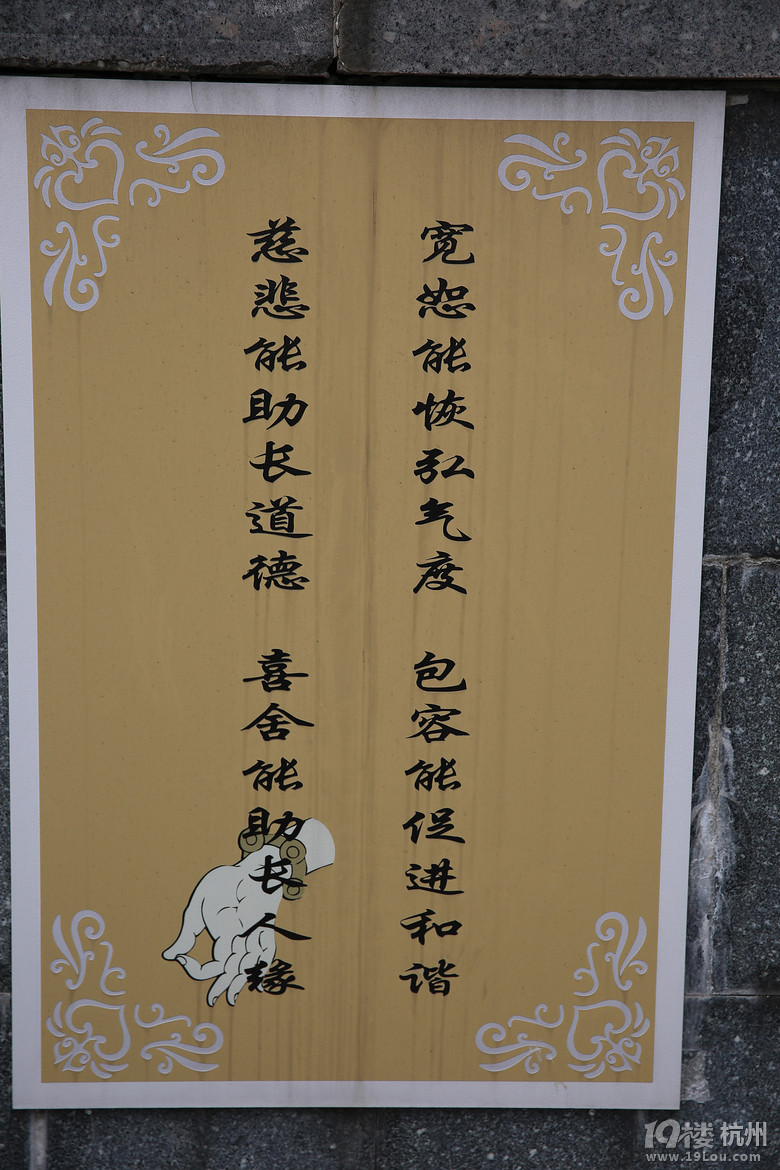 宽恕能恢弘气度 包容能促进和谐
慈悲能助长道德 喜舍能助长人缘
19楼 杭州
www.19lou.com